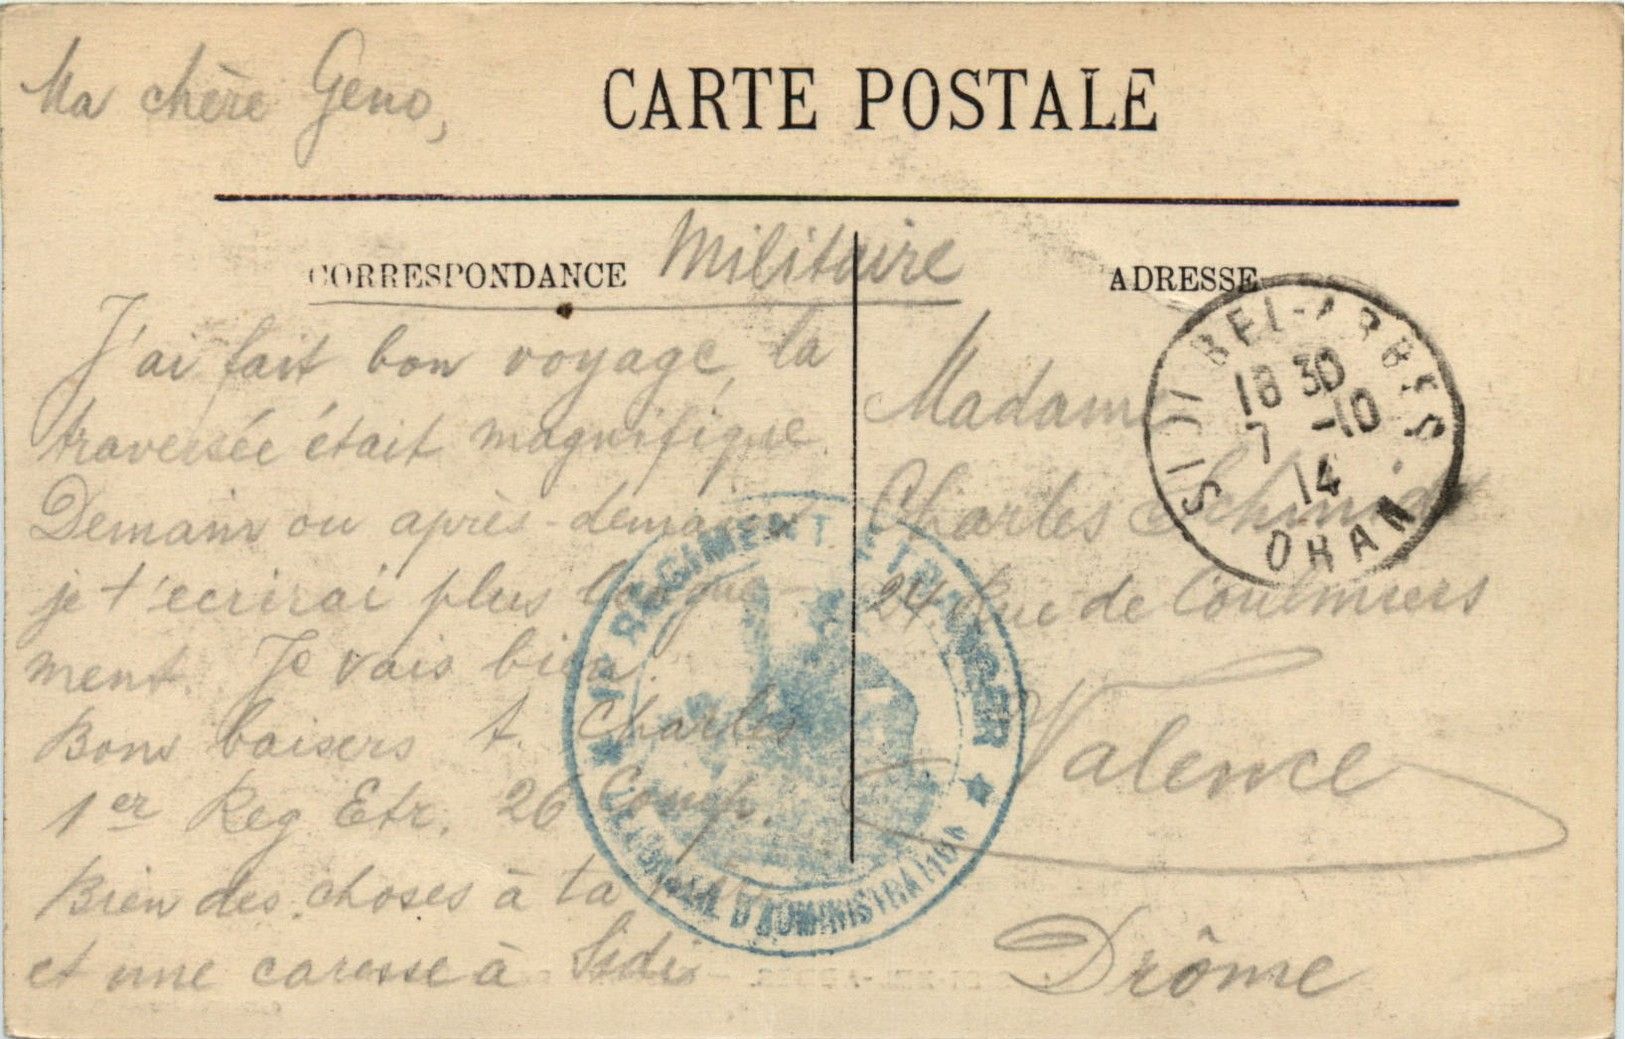 Ma chère Geno,
CARTE POSTALE
CORRESPONDANCE Militaire
J'ai fait bon voyage, la
traversée était magnifique.
Demain ou après-demain
je t'ecrirai plus longue-
ment. Je vais bien.
Bons baisers t. Charles
1er Reg Etr. 26 Comp.
Bien des choses à ta
et une caresse à Sidi
ADRESSE
Madame
Charles Schmidt
24 Rue de Coulmiers
Valence
Drôme
SIDI BEL-ABBÈS
18 30
7 -10
14
ORAN
1ER RÉGIMENT ÉTRANGER
D'ADMINISTRATION